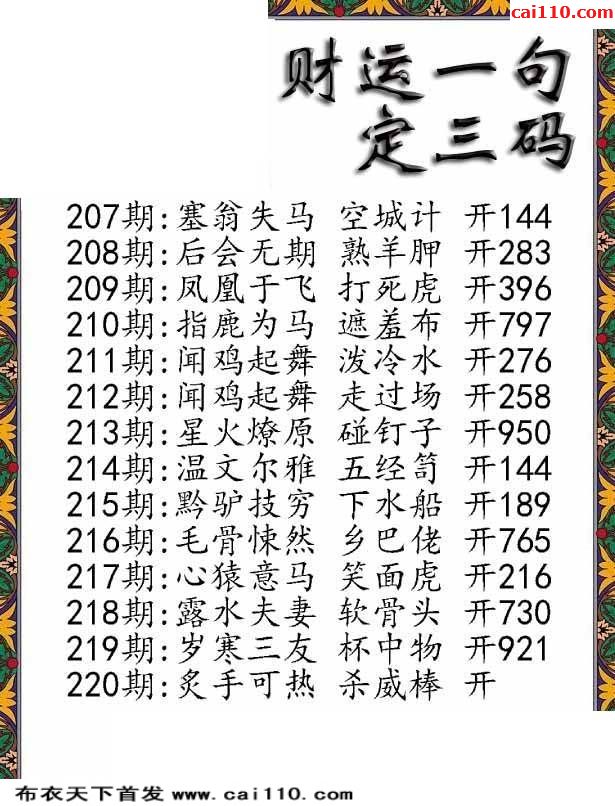 cai110.com
财运一句
定三码
207期:塞翁失马 空城计 开144
208期:后会无期 熟羊胛 开283
209期:凤凰于飞 打死虎 开396
210期:指鹿为马 遮羞布 开797
211期:闻鸡起舞 泼冷水 开276
212期:闻鸡起舞 走过场 开258
213期:星火燎原 碰钉子 开950
214期:温文尔雅 五经笥 开144
215期:黔驴技穷 下水船 开189
216期:毛骨悚然 乡巴佬 开765
217期:心猿意马 笑面虎 开216
218期:露水夫妻 软骨头 开730
219期:岁寒三友 杯中物 开921
220期:炙手可热 杀威棒 开
布衣天下首发 www.cai110.com